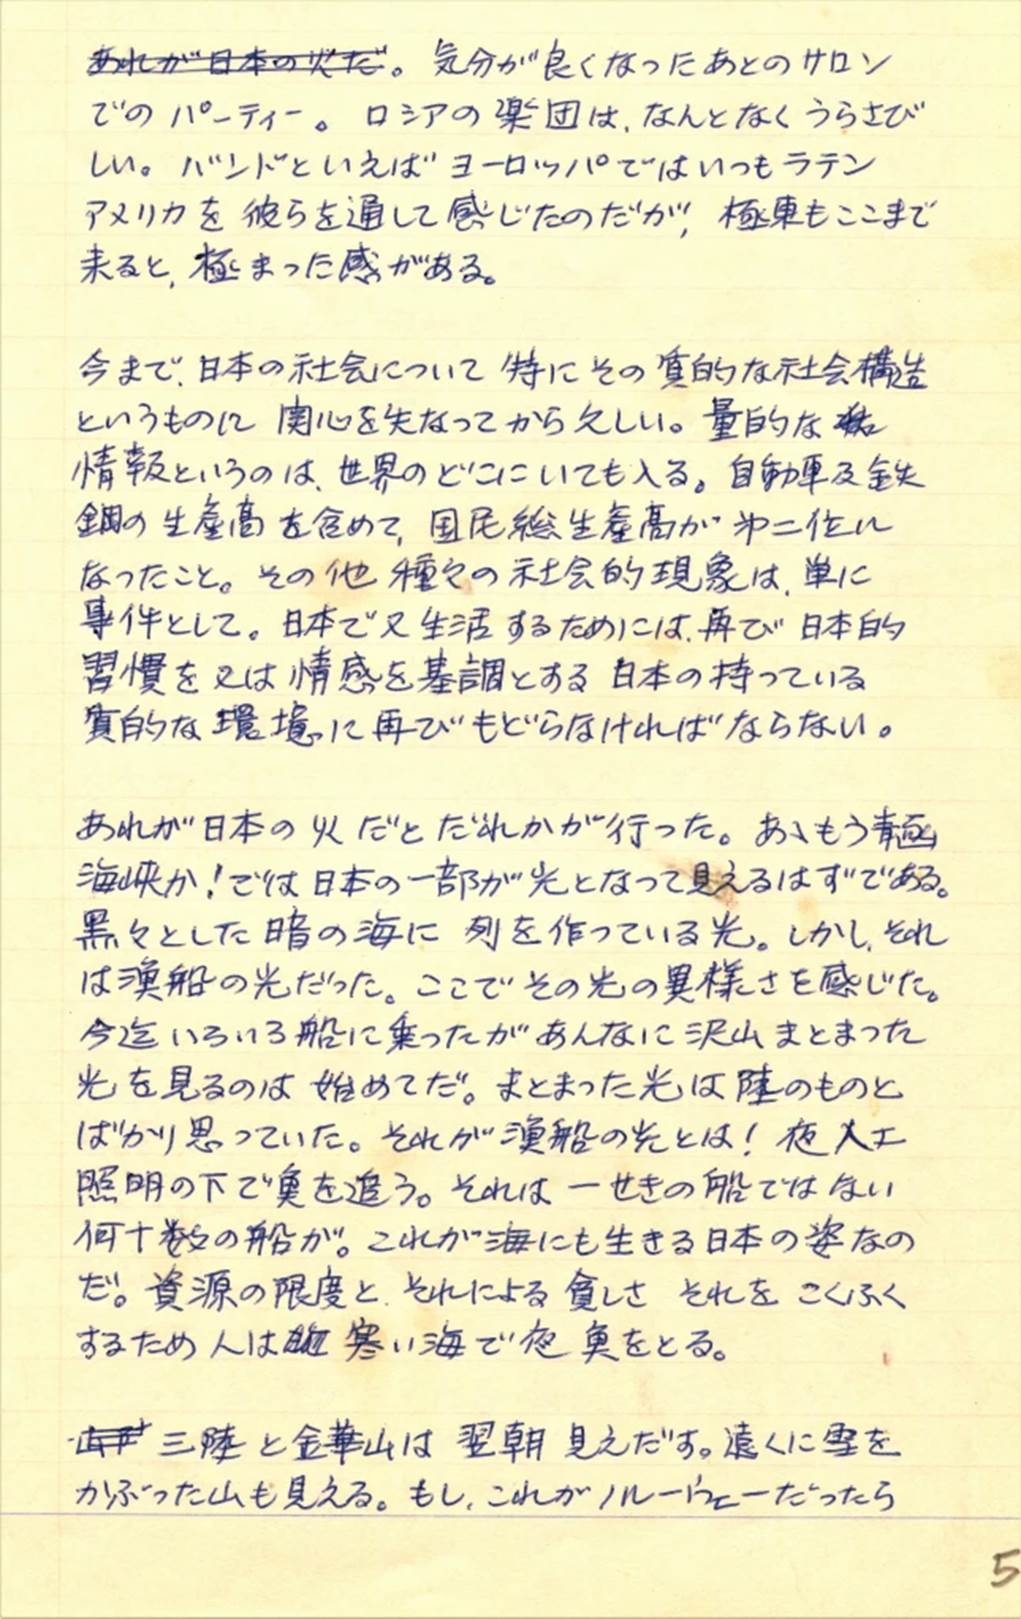 あれが日本の火だ。気分が良くなったあとのサロン
でのパーティー。ロシアの楽団は、なんとなくうらさび
しい。バンドといえばヨーロッパではいつもラテン
アメリカを彼らを通して感じたのだが、極東もここまで
来ると、極まった感がある。
今まで、日本の社会について特にその質的な社会構造
というものに関心を失なってから久しい。量的な
情報というのは、世界のどこにいても入る。自動車及鉄
鋼の生産高を含めて、国民総生産高が第二位に
なったこと。その他種々の社会的現象は、単に
事件として。日本で又生活するためには、再び日本的
習慣を又は情感を基調とする日本の持っている
質的な環境に再びもどらなければならない。
あれが日本の火だとだれかが行った。あゝもう青函
海峡か!では日本の一部が光となって見えるはずである。
黒々とした暗の海に列を作っている光。しかし、それ
は漁船の光だった。ここでその光の異様さを感じた。
今迄いろいろ船に乗ったがあんなに沢山まとまった
光を見るのは始めてだ。まとまった光は陸のものと
ばかり思っていた。それが漁船の光とは!夜人工
照明の下で魚を追う。それは一せきの船ではない
何十数の船が。これが海にも生きる日本の姿なの
だ。資源の限度と、それによる貧しさ それをこくふく
するため人は寒い海で夜魚をとる。
三陸と金華山は翌朝見えだす。遠くに雪を
かぶった山も見える。もし、これがノルーウェーだったら
5